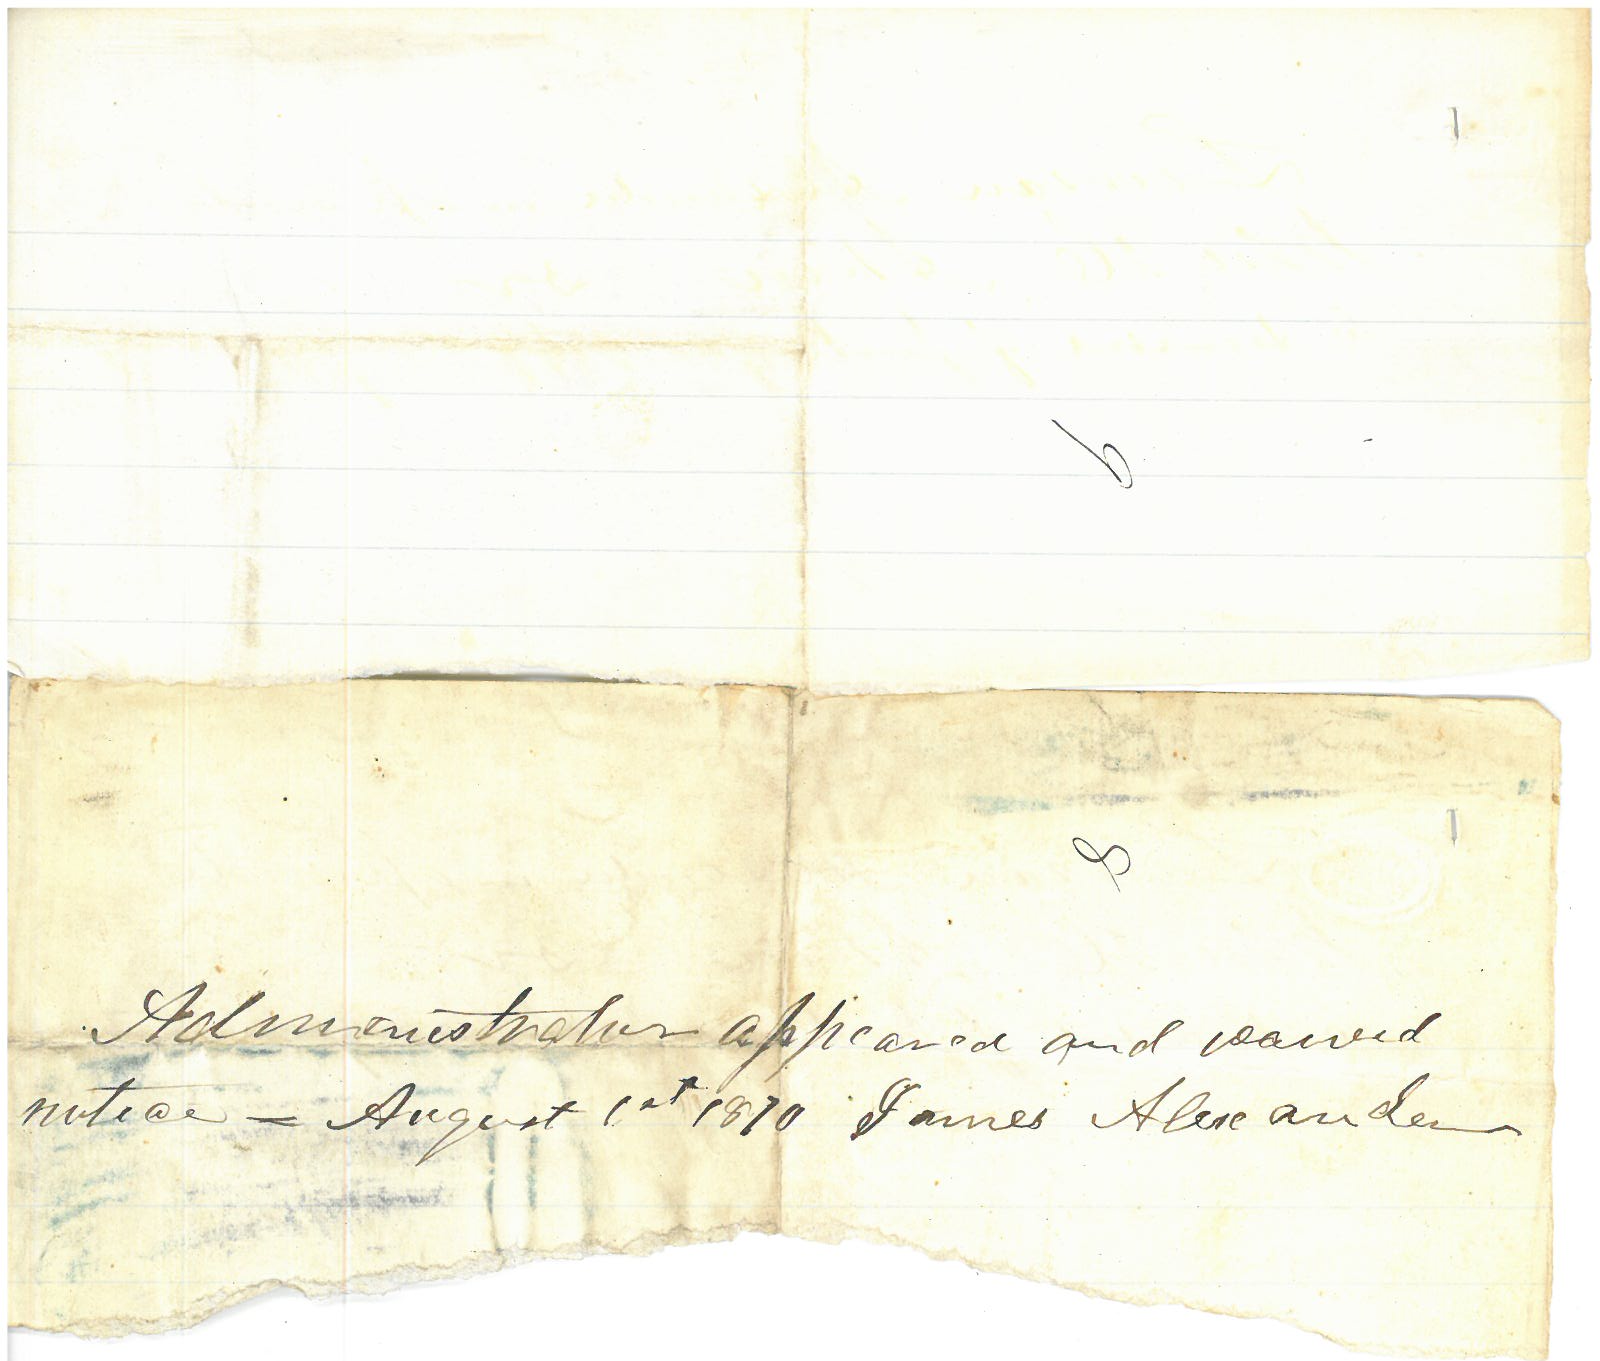 9
8
Administrator appeared and waived
notice = August 1st 1870 James Alexander